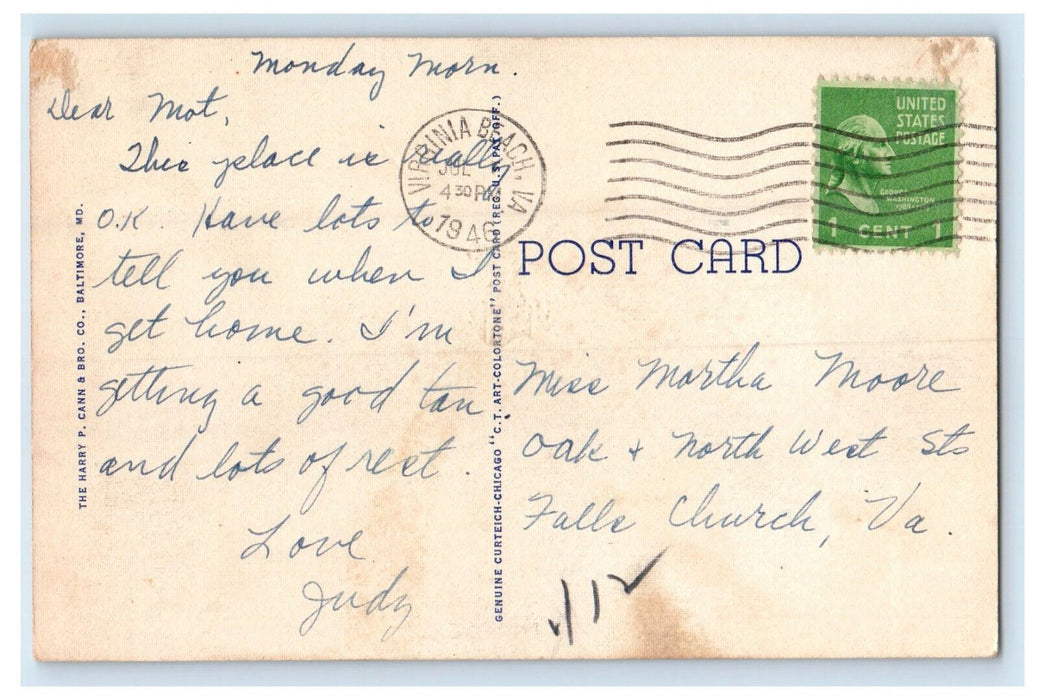 Monday Morn.
Dear Mot,
This place is really
O.K. Have lots to
tell you when I
get home. I'm
getting a good tan
and lots of rest.
Love
Judy
THE HARRY P. CANN & BRO. CO., BALTIMORE, MD.
GENUINE CURTEICH-CHICAGO "C.T. ART-COLORTONE" POST CARD (REG. U.S. PAT. OFF.)
VIRGINIA BEACH, VA
JUL
4 30 PM
1946
UNITED
STATES
POSTAGE
GEORGE
WASHINGTON
1 CENT 1
POST CARD
Miss Martha Moore
Oak + North West Sts
Falls Church, Va.